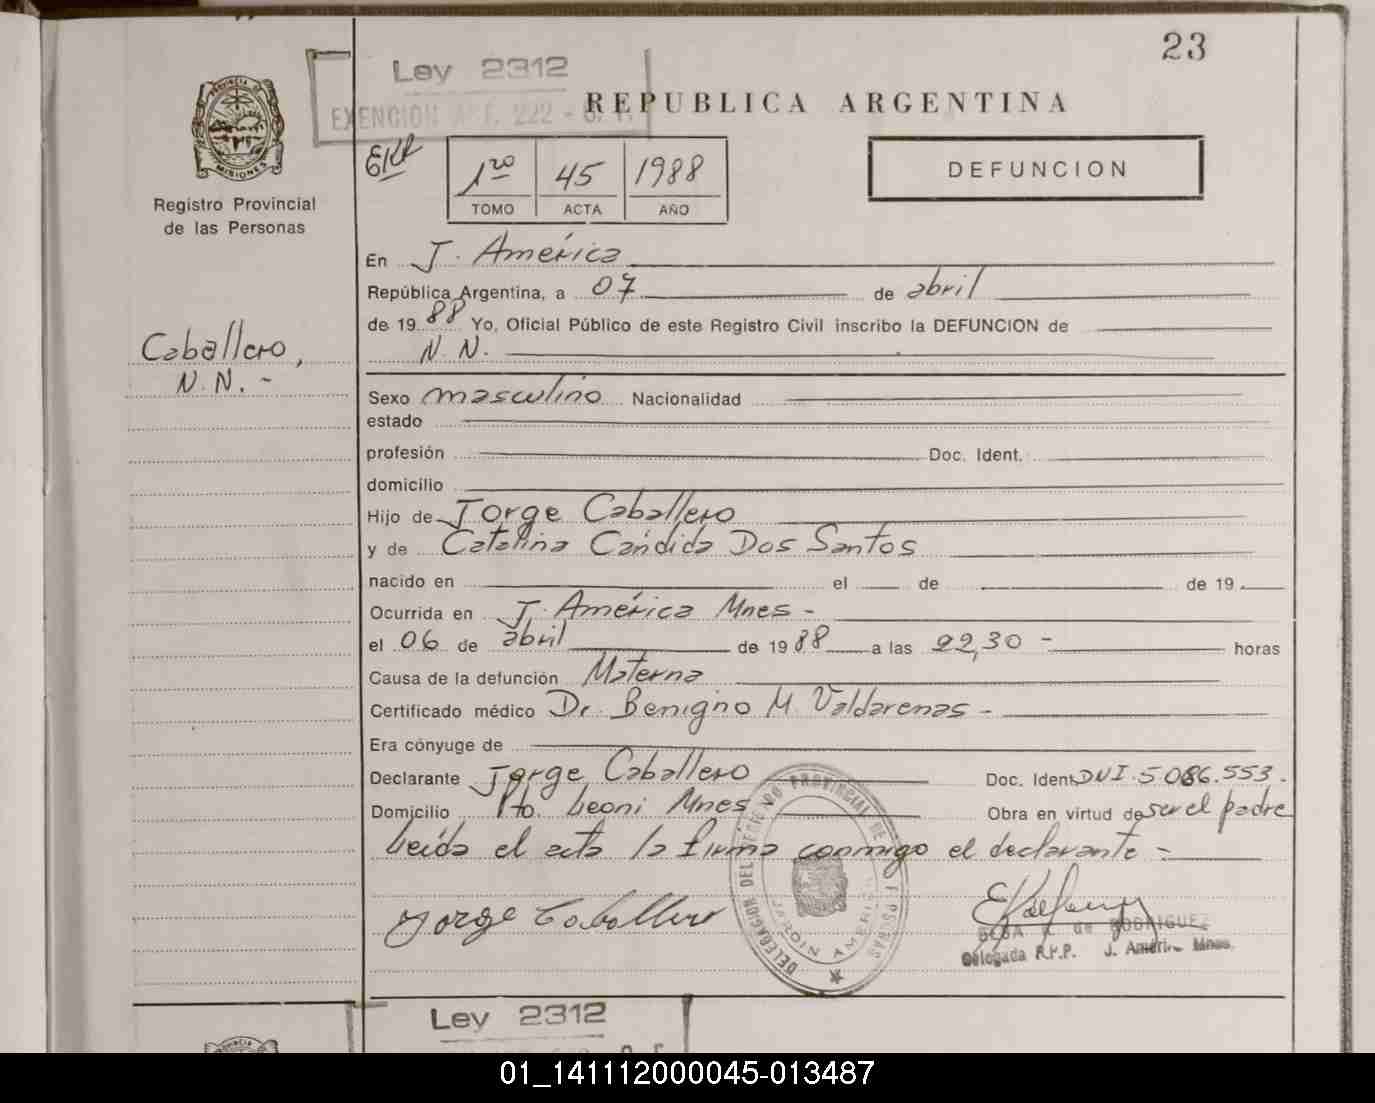 23
Ley 2312
EXENCION ART. 222 -
REPUBLICA ARGENTINA
PROVINCIA DE MISIONES
Registro Provincial
de las Personas
1ro 45 1988
TOMO ACTA AÑO
DEFUNCION
En J. América
República Argentina, a 07 de abril
de 1988 Yo, Oficial Público de este Registro Civil inscribo la DEFUNCION de
N. N.
Caballero,
N. N. -
Sexo masculino Nacionalidad
estado
profesión Doc. Ident.
domicilio
Hijo de Jorge Caballero
y de Catalina Cándida Dos Santos
nacido en el de de 19
Ocurrida en J. América Mnes -
el 06 de abril de 1988 a las 22,30 - horas
Causa de la defunción Materna
Certificado médico Dr. Benigno M Valdarenas -
Era cónyuge de
Declarante Jorge Caballero Doc. Ident. DNI. 5.086.553.
Domicilio Pto. Leoni Mnes Obra en virtud de ser el padre
Leída el acta la firma conmigo el declarante -
Jorge Caballero
DELEGACION DEL REGISTRO PROVINCIAL DE LAS PERSONAS
JARDIN AMERICA
de RODRIGUEZ
Delegada R.P.P. J. América Mnes.
Ley 2312
01_141112000045-013487